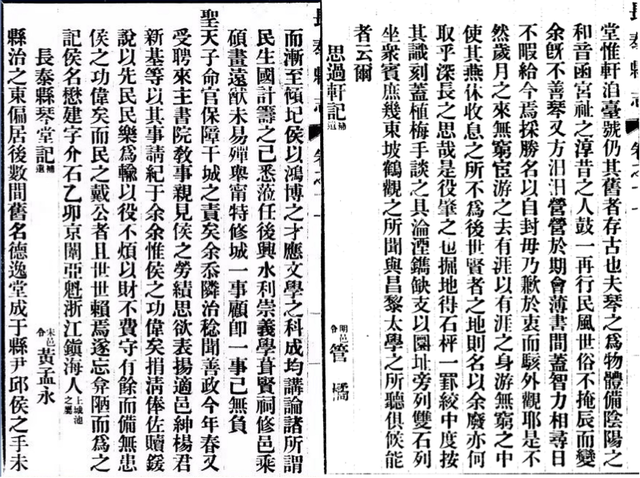 長泰縣志 卷之十
堂惟軒泊臺號仍其舊者存古也夫琴之爲物體備陰陽之
和音函宮祉之淳昔之人鼓一再行民風世俗不掩辰而變
余旣不善琴又方汨汨營營於期會薄書間蓋智力相尋日
不暇給今焉採勝名以自封毋乃歉於衷而駭外觀耶是不
然歲月之來無窮宦游之去有涯以有涯之身游無窮之中
使其燕休收息之所不爲後世賢者之地則名以余廢亦何
取乎深長之思哉是役肇之也掘地得石枰一罫絞中度按
其識刻蓋植梅手談之具淪湮鐫缺支以園址旁列雙石列
坐衆賓庶幾東坡鶴觀之所聞與昌黎太學之所聽俱候能
者云爾
思過軒記補遺 明邑令 管橘
而漸至傾圮侯以鴻博之才應文學之科成均講論諸所謂
民生國計籌之已悉蒞任後興水利崇義學葺賢祠修邑乘
碩畫遠猷未易殫舉甯特修城一事顧卽一事已無負
聖天子命官保障干城之責矣余忝隣治稔聞善政今年春又
受聘來主書院敎事親見侯之勞績思欲表揚適邑紳楊君
新基等以其事請紀于余余惟侯之功偉矣捐淸俸佐贖鍰
說以先民民樂爲輸以役不煩以財不費守有餘而備無患
侯之功偉矣而民之戴公者且世世賴焉遂忘弇陋而爲之
記侯名懋建字介石乙卯京闈亞魁浙江鎭海人上城池之屬
長泰縣琴堂記補遺 宋邑令 黃孟永
縣治之東偏居後數間舊名德逸堂成于縣尹邱侯之手未